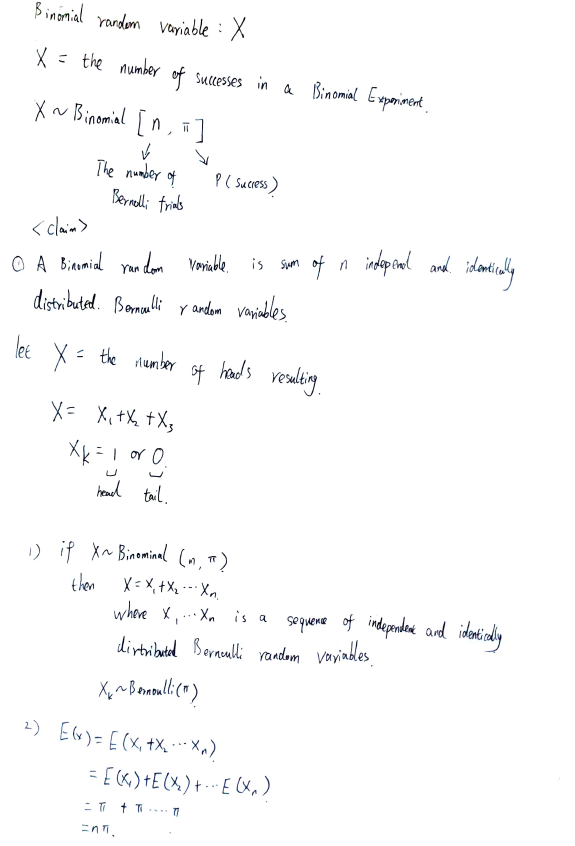 Binomial random variable : X
X = the number of successes in a Binomial Experiment.
X ~ Binomial [n, π]
The number of Bernolli trials
P(success)
<claim>
① A Binomial random variable. is sum of n indepenel and identically
distributed. Bernoulli random variables.
let X = the number of heads resulting.
X = X₁+X₂+X₃
Xk = 1 or 0.
head tail.
1) if X~Binominal (n, π)
then X = X₁+X₂ ... Xn.
where X₁ ... Xn is a sequence of independent and identically
dirtributed Bernoulli random variables.
Xk ~ Bernoulli(π)
2) E(x) = E(X₁+X₂ ... Xn)
= E(X₁)+E(X₂)+ ... E(Xn)
= π + π .... π
= nπ.